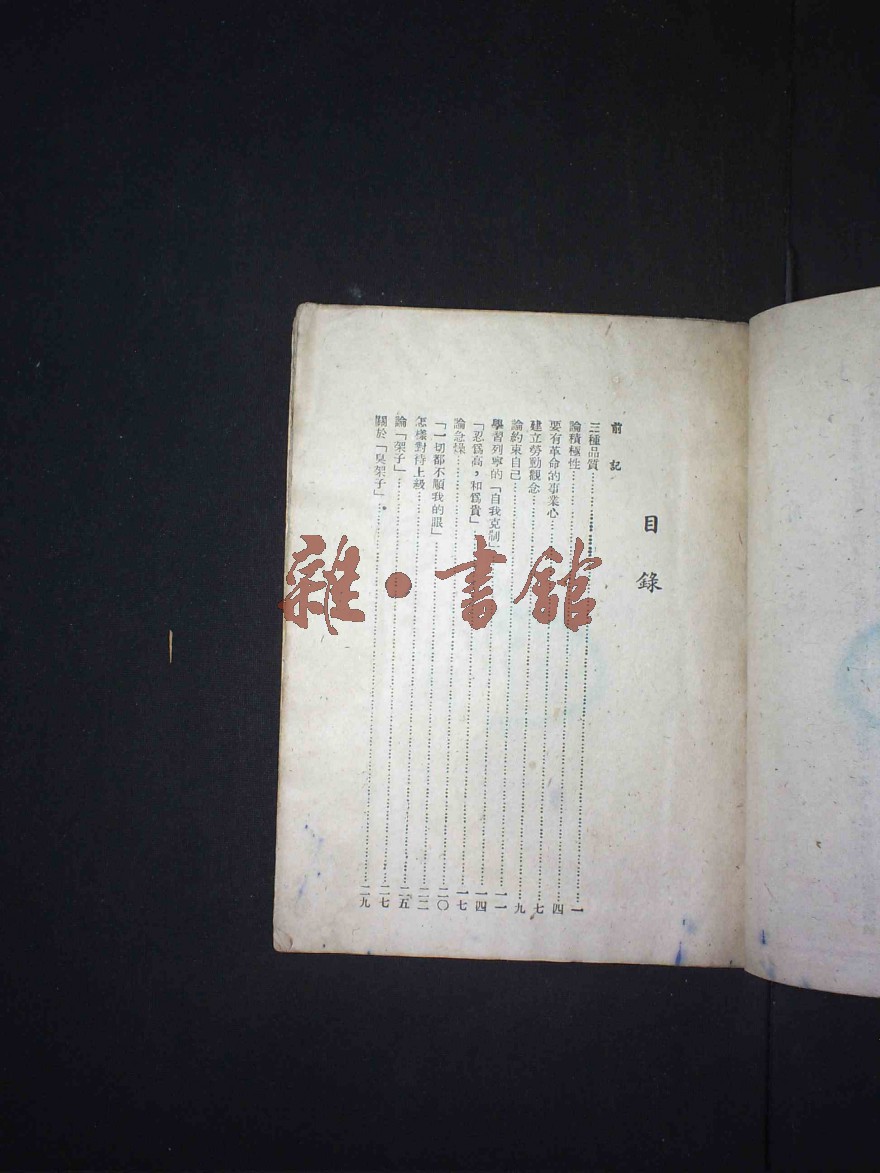 目錄
前記
三種品質……一
論積極性……四
要有革命的事業心……七
建立勞動觀念……九
論約束自己……一一
學習列寧的「自我克制」……一四
「忍爲高，和爲貴」……一七
論急燥……二〇
「一切都不順我的眼」……二二
怎樣對待上級……二五
論「架子」……二七
關於「臭架子」……二九
雜·書館